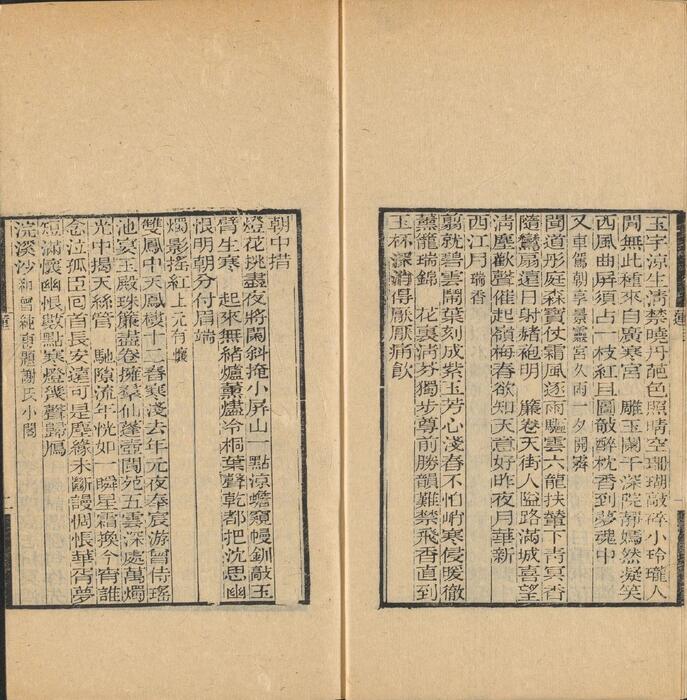 玉宇涼生淸禁曉丹葩色照晴空珊瑚敲碎小玲瓏人
間無此種來自廣寒宮　雕玉闌干深院靜嫣然凝笑
西風曲屏須占一枝紅且圖敧醉枕香到夢魂中
又車駕朝享景靈宮久雨一夕開霽
聞道彤庭森寶仗霜風逐雨驅雲六龍扶輦下靑冥香
隨鸞扇遠日射赭袍明　簾卷天街人隘路滿城喜望
淸塵歡聲催起嶺梅春欲知天意好昨夜月華新
西江月瑞香
翦就碧雲鬧葉刻成紫玉芳心淺春不怕峭寒侵暖徹
薰籠瑞錦　花裏淸芬獨步尊前勝韻難禁飛香直到
玉杯深消得厭厭痛飮
朝中措
燈花挑盡夜將闌斜掩小屏山一點涼蟾窺幔釧敲玉
臂生寒　起來無緖爐薰燼冷桐葉聲乾都把沈思幽
恨明朝分付眉端
燭影搖紅上元有懷
雙鳳中天鳳樓十二春寒淺去年元夜奉宸游曾侍瑤
池宴玉殿珠簾盡卷擁羣仙蓬壺閬苑五雲深處萬燭
光中揭天絲管　馳隙流年恍如一瞬星霜換今宵誰
念泣孤臣回首長安遠可是塵緣未斷謾惆悵華胥夢
短滿懷幽恨數點寒燈幾聲歸鴈
浣溪沙和曾純甫題謝氏小閣